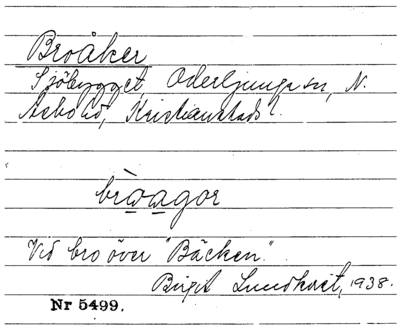 Broåker
Sjöbygget Oderljunga sn, N.
Åsbo hd, Kristianstads l.
bròagor
Vid bro över "Bäcken".
Birgit Lundkvist, 1938.
Nr 5499.